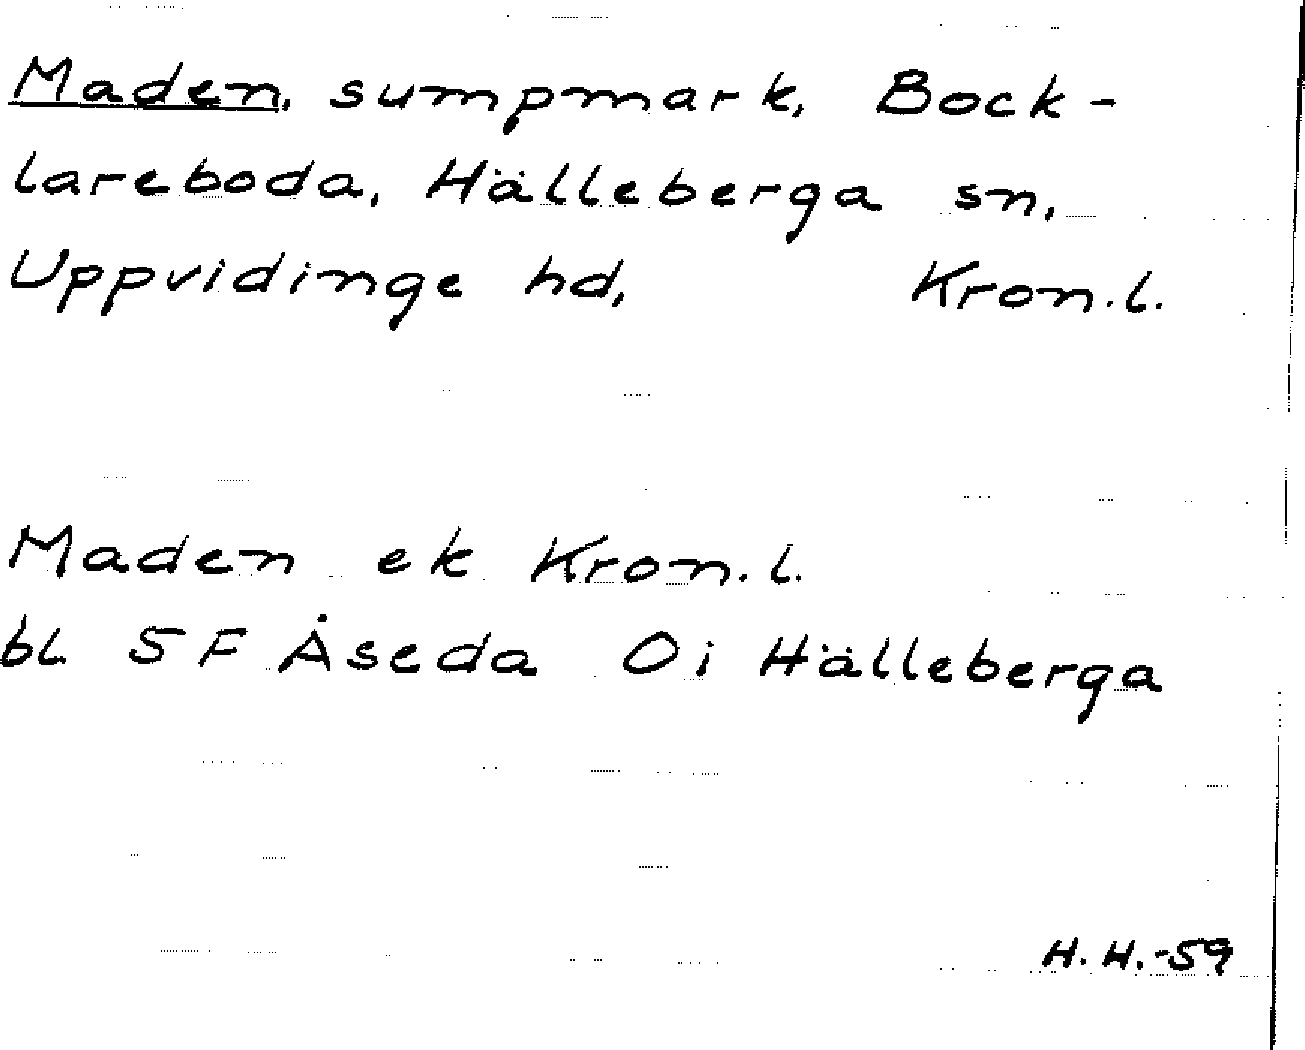 Maden, sumpmark, Bock-
lareboda, Hälleberga sn,
Uppvidinge hd, Kron.l.
Maden ek Kron.l.
bl. 5 F Åseda Oi Hälleberga
H.H.-59